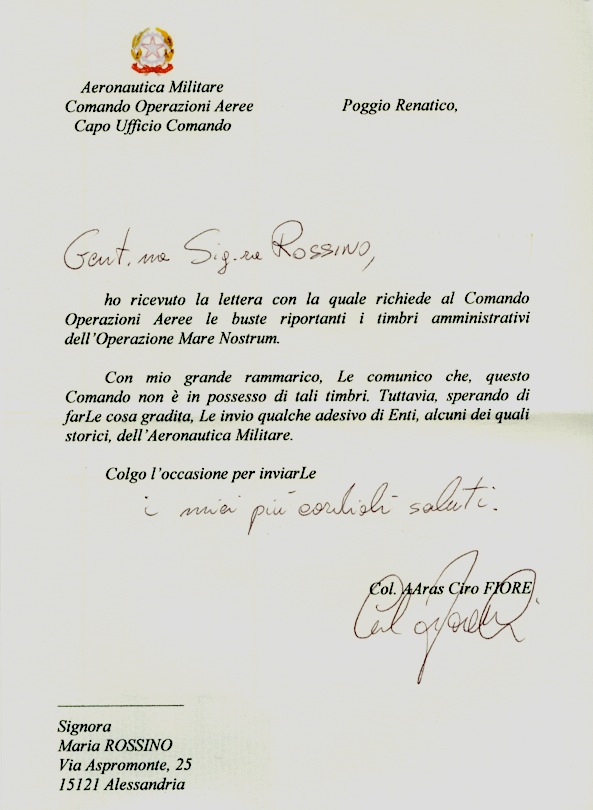 Aeronautica Militare
Comando Operazioni Aeree
Capo Ufficio Comando
Poggio Renatico,
Gent.ma Sig.ra ROSSINO,
ho ricevuto la lettera con la quale richiede al Comando
Operazioni Aeree le buste riportanti i timbri amministrativi
dell'Operazione Mare Nostrum.
Con mio grande rammarico, Le comunico che, questo
Comando non è in possesso di tali timbri. Tuttavia, sperando di
farLe cosa gradita, Le invio qualche adesivo di Enti, alcuni dei quali
storici, dell'Aeronautica Militare.
Colgo l'occasione per inviarLe
i miei più cordiali saluti.
Col. AAras Ciro FIORE
Signora
Maria ROSSINO
Via Aspromonte, 25
15121 Alessandria